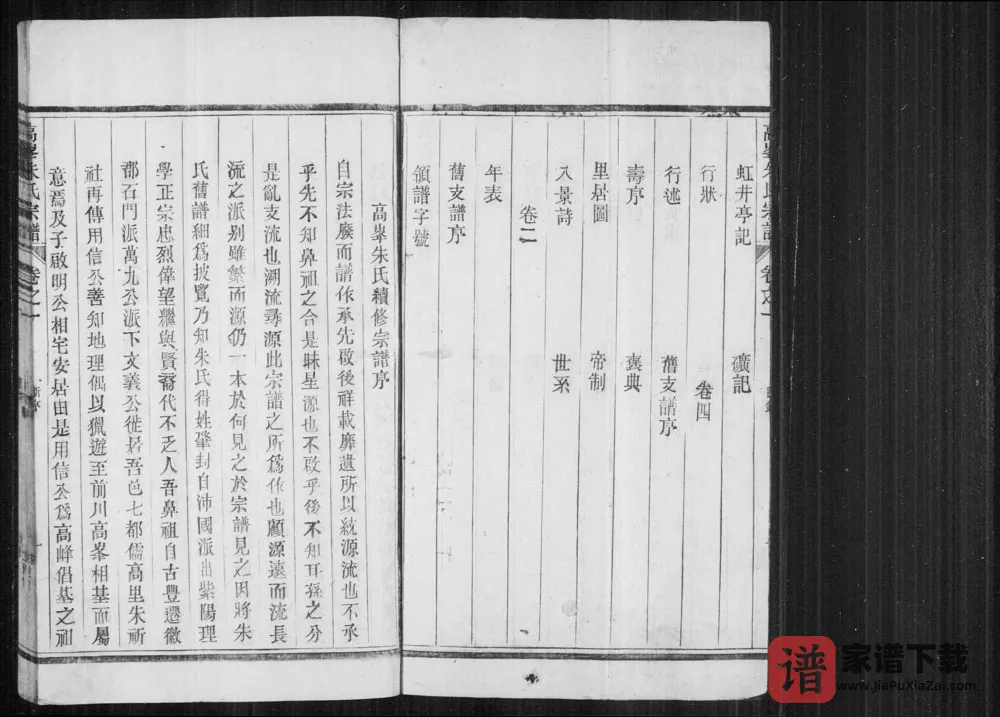 高峯朱氏宗譜 卷之一
虹井亭記 礦記
行狀 卷四
行述 舊支譜序
壽序 褒典
里居圖 帝制
八景詩 世系
卷二
年表
舊支譜序
領譜字號
高峯朱氏續修宗譜序
自宗法廢而譜作承先啟後祥載靡遺所以統源流也不承
乎先不知鼻祖之合是昧星源也不啟乎後不知耳孫之分
是亂支流也溯流尋源此宗譜之所爲作也顧源遠而流長
流之派别雖繁而源仍一本於何見之於宗譜見之因將朱
氏舊譜細爲披覽乃知朱氏得姓肇封自沛國派出紫陽理
學正宗忠烈偉望繼與賢裔代不乏人吾鼻祖自古豐遷徽
郡石門派萬九公派下文義公徙居吾邑七都儒高里朱祈
社再傳用信公善知地理偶以獵遊至前川高峯相基而屬
意焉及子啟明公相宅安居由是用信公爲高峰倡基之祖
高峯朱氏宗譜 卷之一
譜 家谱下载
www.JiaPuXiaZai.com